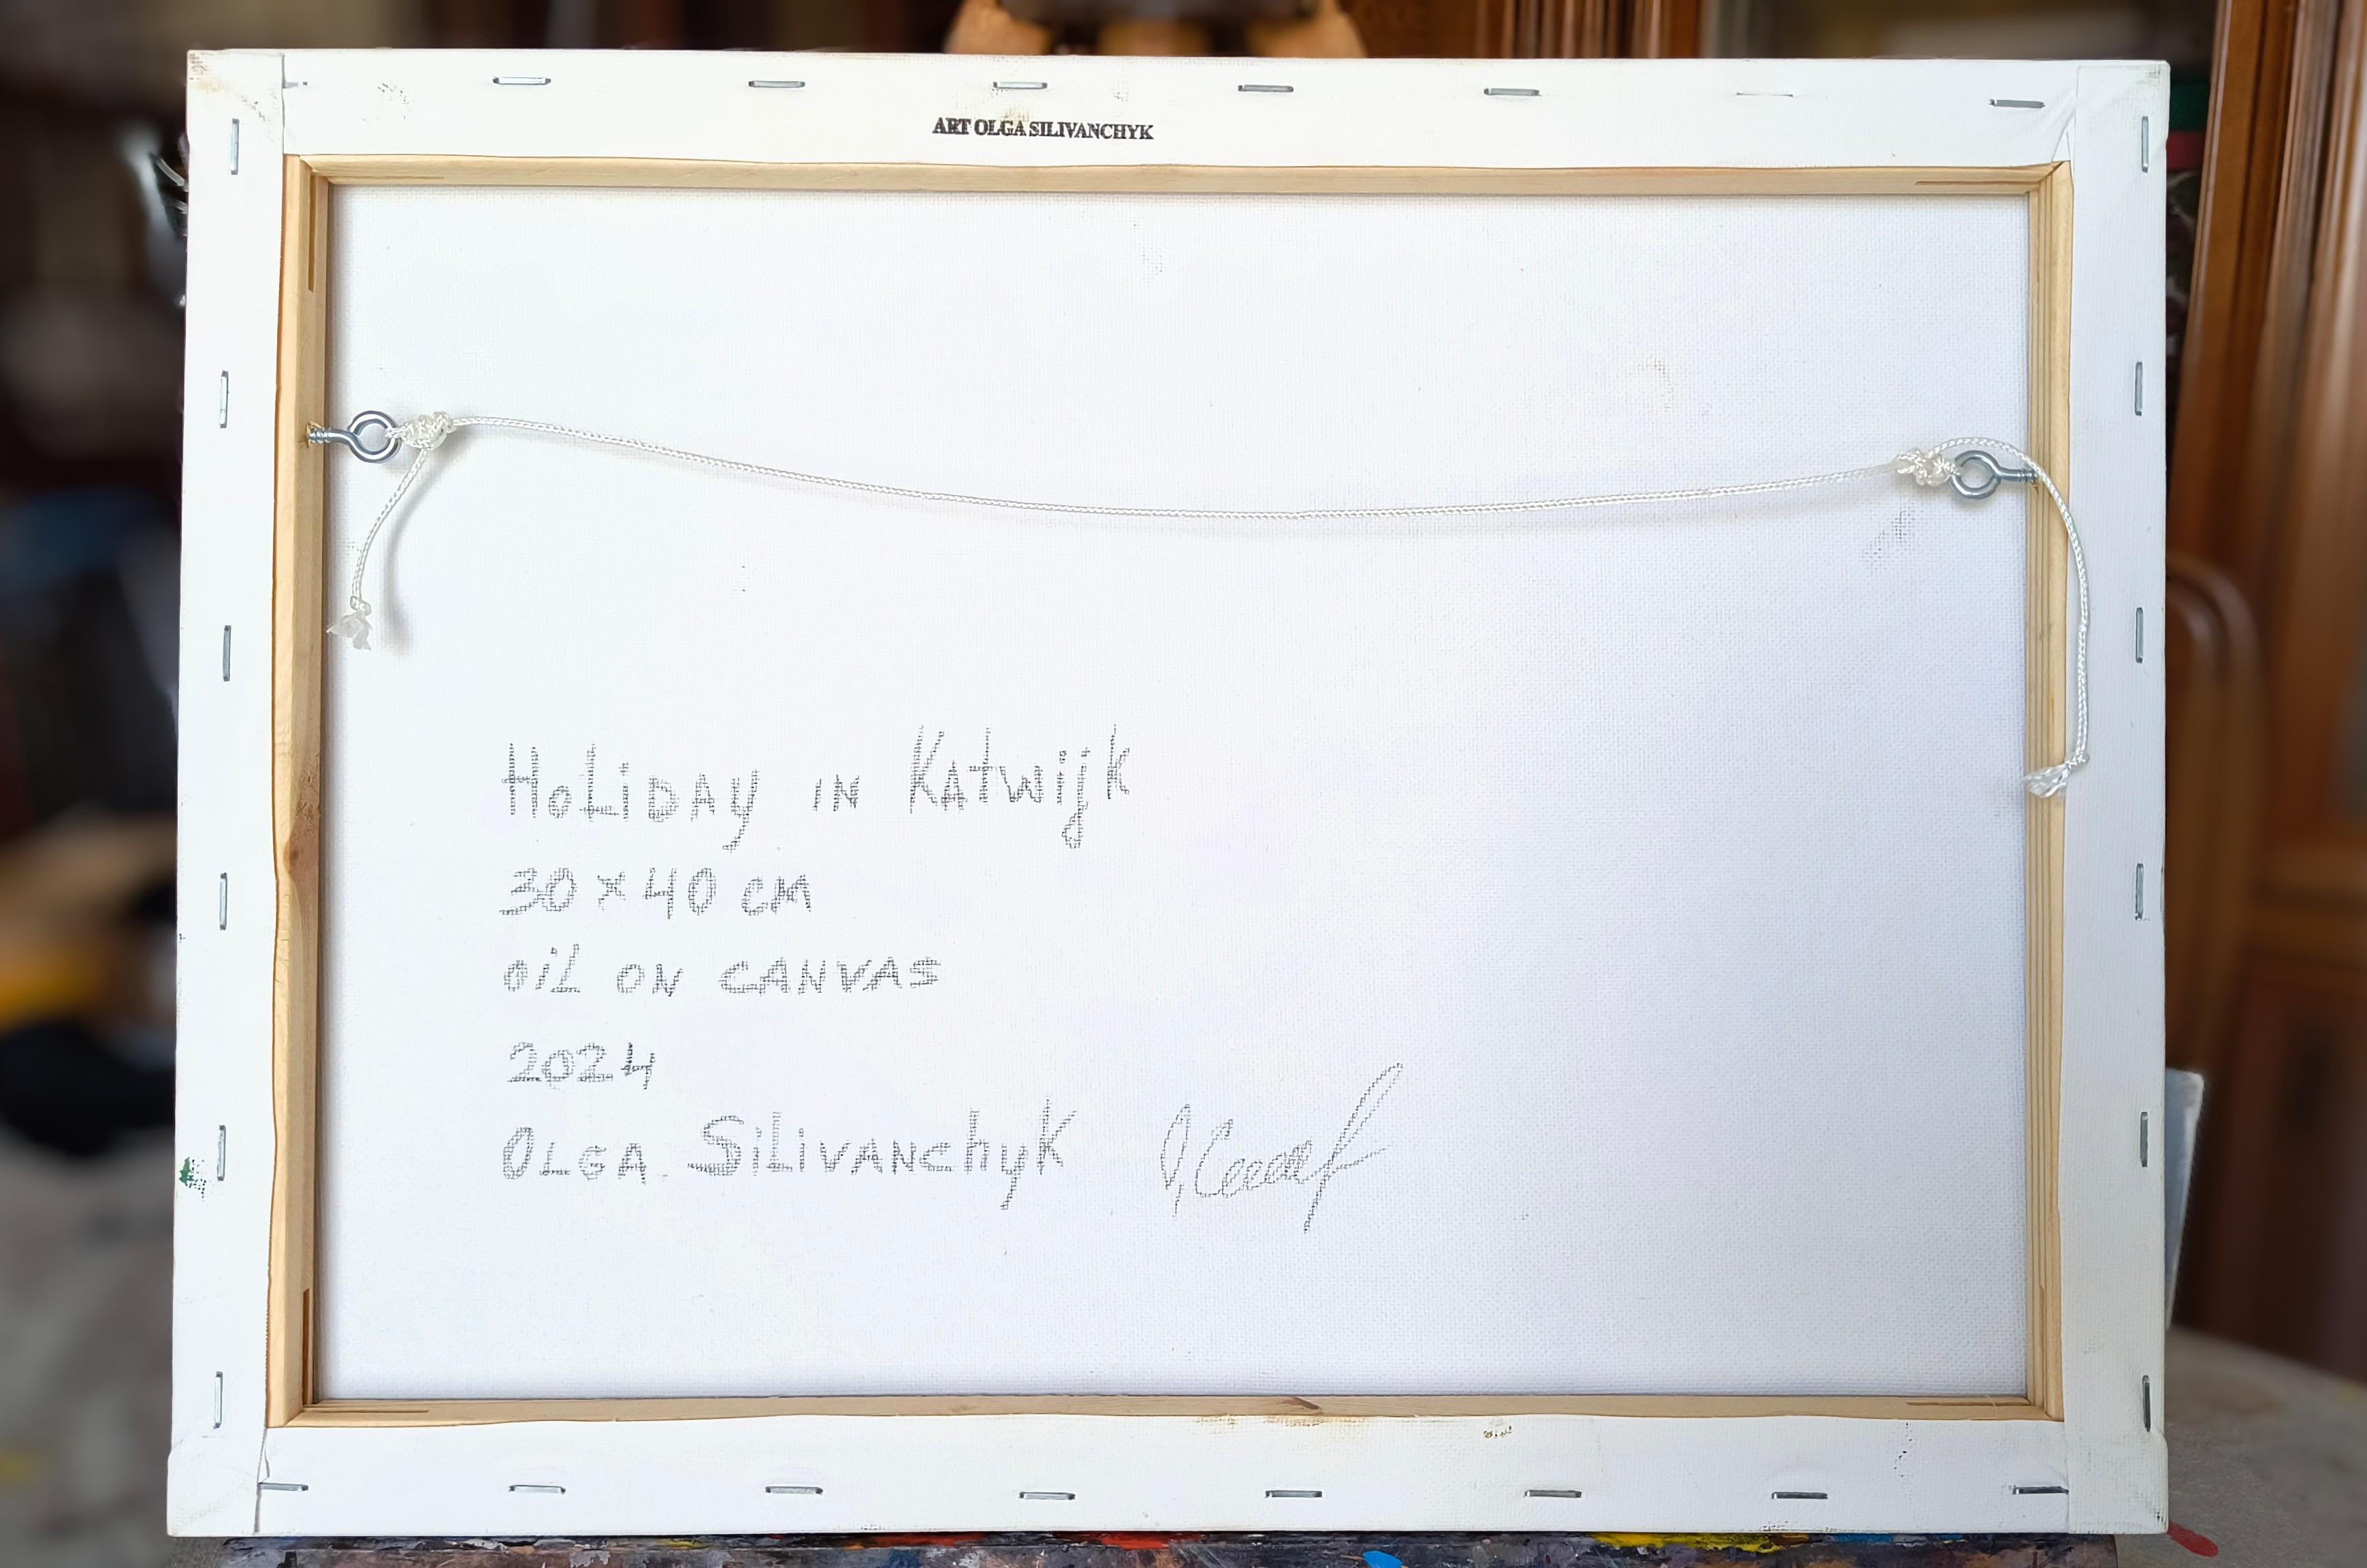 ART OLGA SILIVANCHYK
HOLIDAY IN KATWIJK
30 x 40 CM
OIL ON CANVAS
2024
OLGA SILIVANCHYK